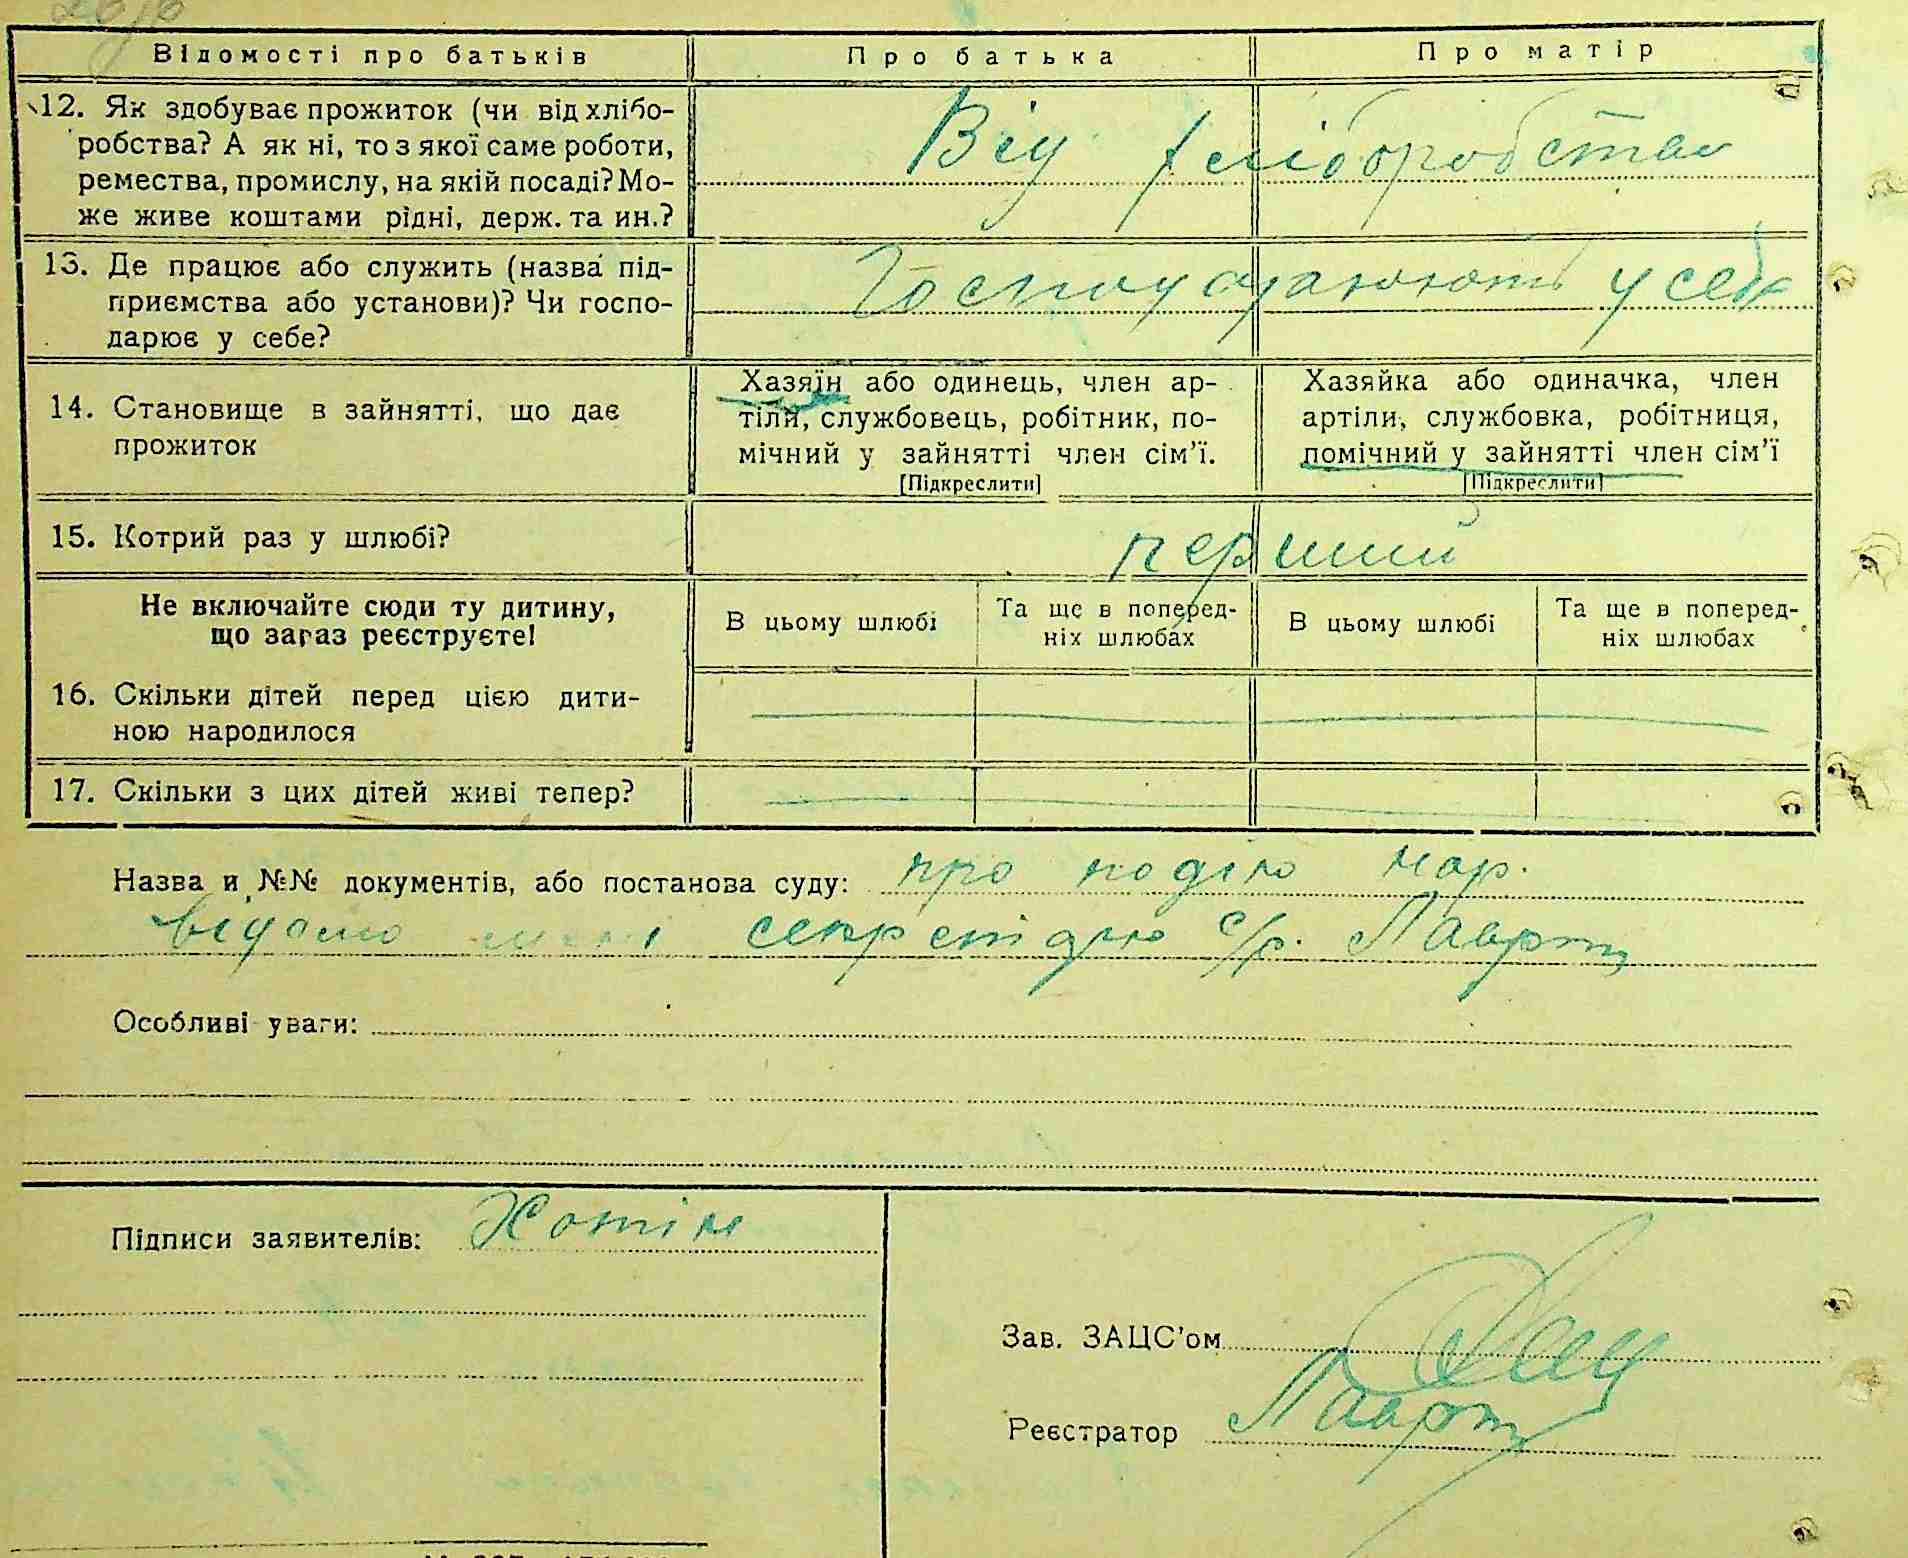 Відомості про батьків Про батька Про матір
12. Як здобуває прожиток (чи від хлібо-
робства? А як ні, то з якої саме роботи,
ремества, промислу, на якій посаді? Мо-
же живе коштами рідні, держ. та ин.?
Від хліборобства
13. Де працює або служить (назва під-
приємства або установи)? Чи госпо-
дарює у себе?
Господарюють у себе
14. Становище в зайнятті, що дає
прожиток
Хазяїн або одинець, член ар-
тіли, службовець, робітник, по-
мічний у зайнятті член сім'ї.
[Підкреслити]
Хазяйка або одиначка, член
артіли, службовка, робітниця,
помічний у зайнятті член сім'ї
[Підкреслити]
15. Котрий раз у шлюбі?
перший
Не включайте сюди ту дитину,
що зараз реєструєте!
В цьому шлюбі
Та ще в поперед-
ніх шлюбах
В цьому шлюбі
Та ще в поперед-
ніх шлюбах
16. Скільки дітей перед цією дити-
ною народилося
17. Скільки з цих дітей живі тепер?
Назва и №№ документів, або постанова суду: про подію нар.
відомо мені секретарю с/р.
Особливі уваги:
Підписи заявителів: Хотін
Зав. ЗАЦС'ом
Реєстратор